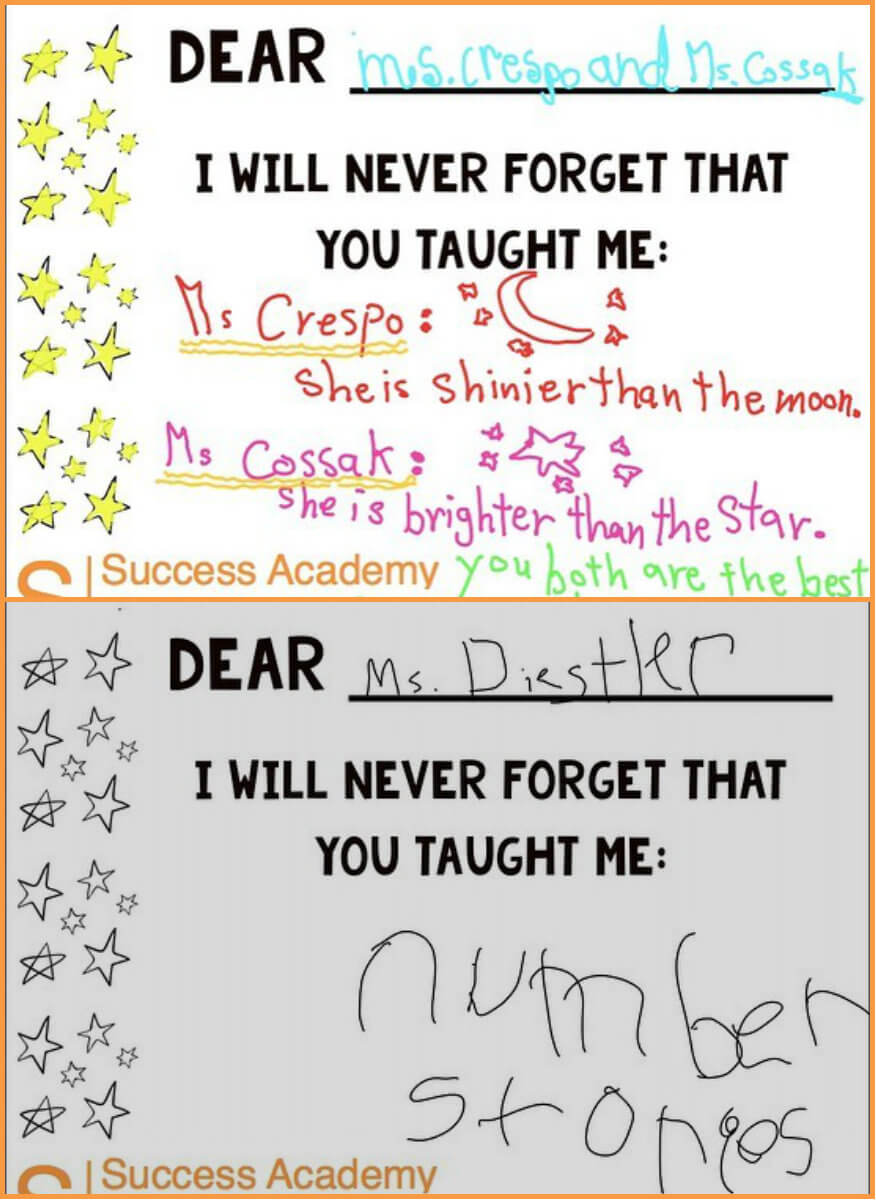 DEAR Ms. Crespo and Ms. Cossak
I WILL NEVER FORGET THAT
YOU TAUGHT ME:
Ms Crespo:
She is shinier than the moon.
Ms Cossak:
She is brighter than the star.
S | Success Academy you both are the best
DEAR Ms. Diestler
I WILL NEVER FORGET THAT
YOU TAUGHT ME:
number
stories
S | Success Academy